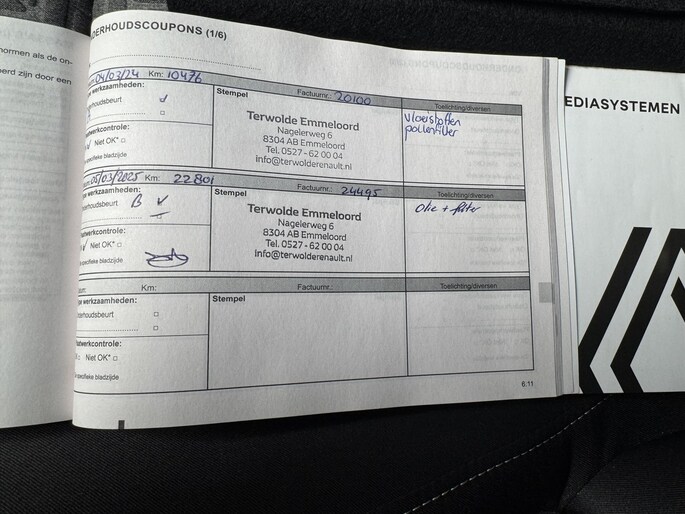 normen als de on-
erd zijn door een
DERHOUDSCOUPONS (1/6)
04/03/24 Km: 10476
Factuurnr.: 20100
werkzaamheden:
Stempel
Toelichting/diversen
erhoudsbeurt
Terwolde Emmeloord
Nagelerweg 6
8304 AB Emmeloord
Tel. 0527 - 62 00 04
info@terwolderenault.nl
vloeistoffen
pollenfilter
atwerkcontrole:
Niet OK*
specifieke bladzijde
05/03/2025 Km: 22801
Factuurnr.: 24495
werkzaamheden:
Stempel
Toelichting/diversen
derhoudsbeurt B
Terwolde Emmeloord
Nagelerweg 6
8304 AB Emmeloord
Tel. 0527 - 62 00 04
info@terwolderenault.nl
Olie + filter
aatwerkcontrole:
Niet OK*
specifieke bladzijde
Km:
Factuurnr.:
e werkzaamheden:
Stempel
Toelichting/diversen
derhoudsbeurt
aatwerkcontrole:
Niet OK*
e specifieke bladzijde
6.11
EDIASYSTEMEN